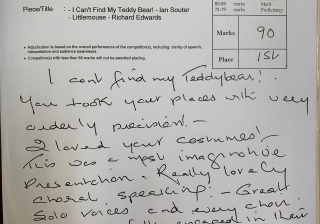 Piece/Title : - I Can't Find My Teddy Bear! - Ian Souter
- Littlemouse - Richard Edwards
80-89 marks Merit
75-79 marks Proficiency
Marks 90
Place 1st
• Adjudication is based on the overall performance of the competitor(s), including clarity of speech, interpretation and audience awareness.
• Competitor(s) with less than 80 marks will not be awarded placing.
I can't find my Teddybear!.
You took your places with very
orderly precision! -
I loved your costumes!
This was a most imaginative
Presentation - Really lovely
choral speaking! - Great
Solo voices and every
engaged in their